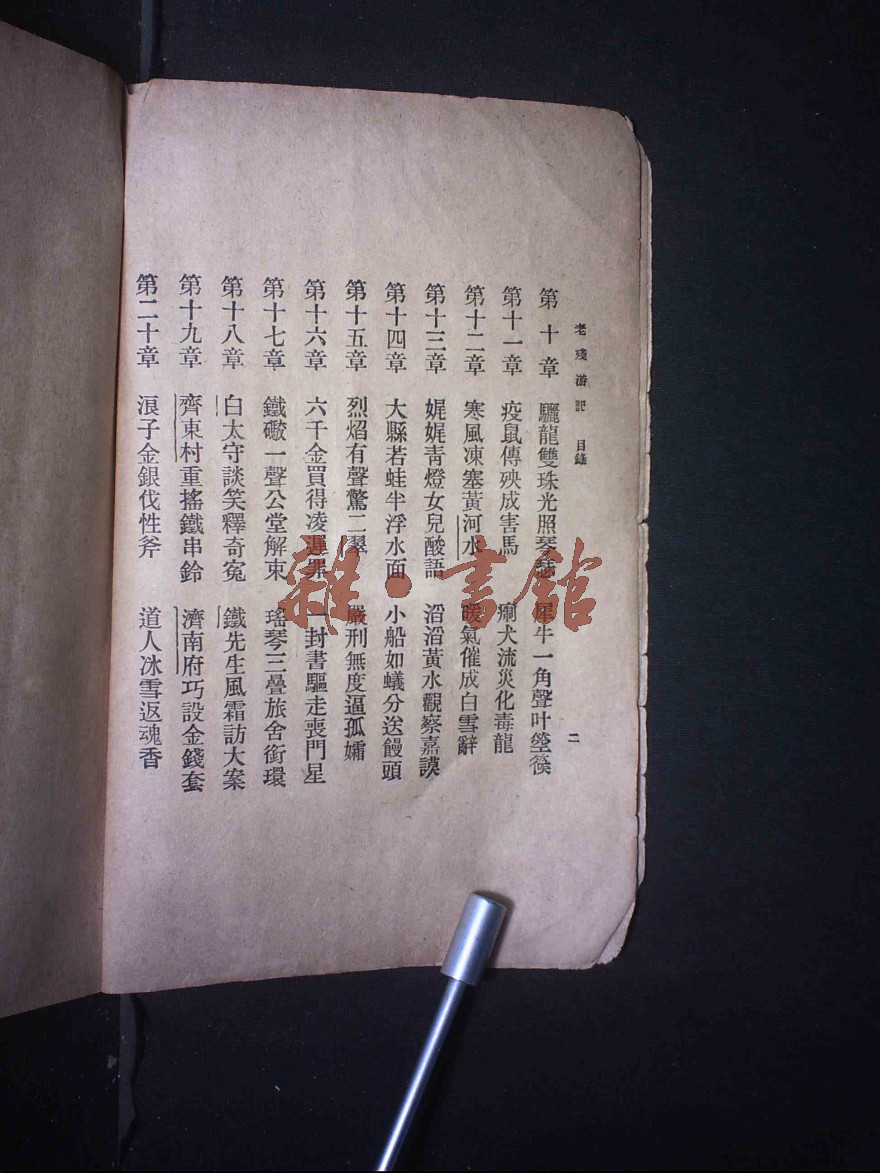 老殘游記 目錄 二
第十章 驪龍雙珠光照琴瑟 犀牛一角聲叶箜篌
第十一章 疫鼠傳殃成害馬 瘈犬流災化毒龍
第十二章 寒風凍塞黃河水 暖氣催成白雪辭
第十三章 娓娓靑燈女兒酸語 滔滔黃水觀察嘉謨
第十四章 大縣若蛙半浮水面 小船如蟻分送饅頭
第十五章 烈焰有聲驚二翠 嚴刑無度逼孤孀
第十六章 六千金買得凌遲罪 一封書驅走喪門星
第十七章 鐵礮一聲公堂解束 瑤琴三疊旅舍銜環
第十八章 白太守談笑釋奇寃 鐵先生風霜訪大案
第十九章 齊東村重搖鐵串鈴 濟南府巧設金錢套
第二十章 浪子金銀伐性斧 道人冰雪返魂香
雜·書館